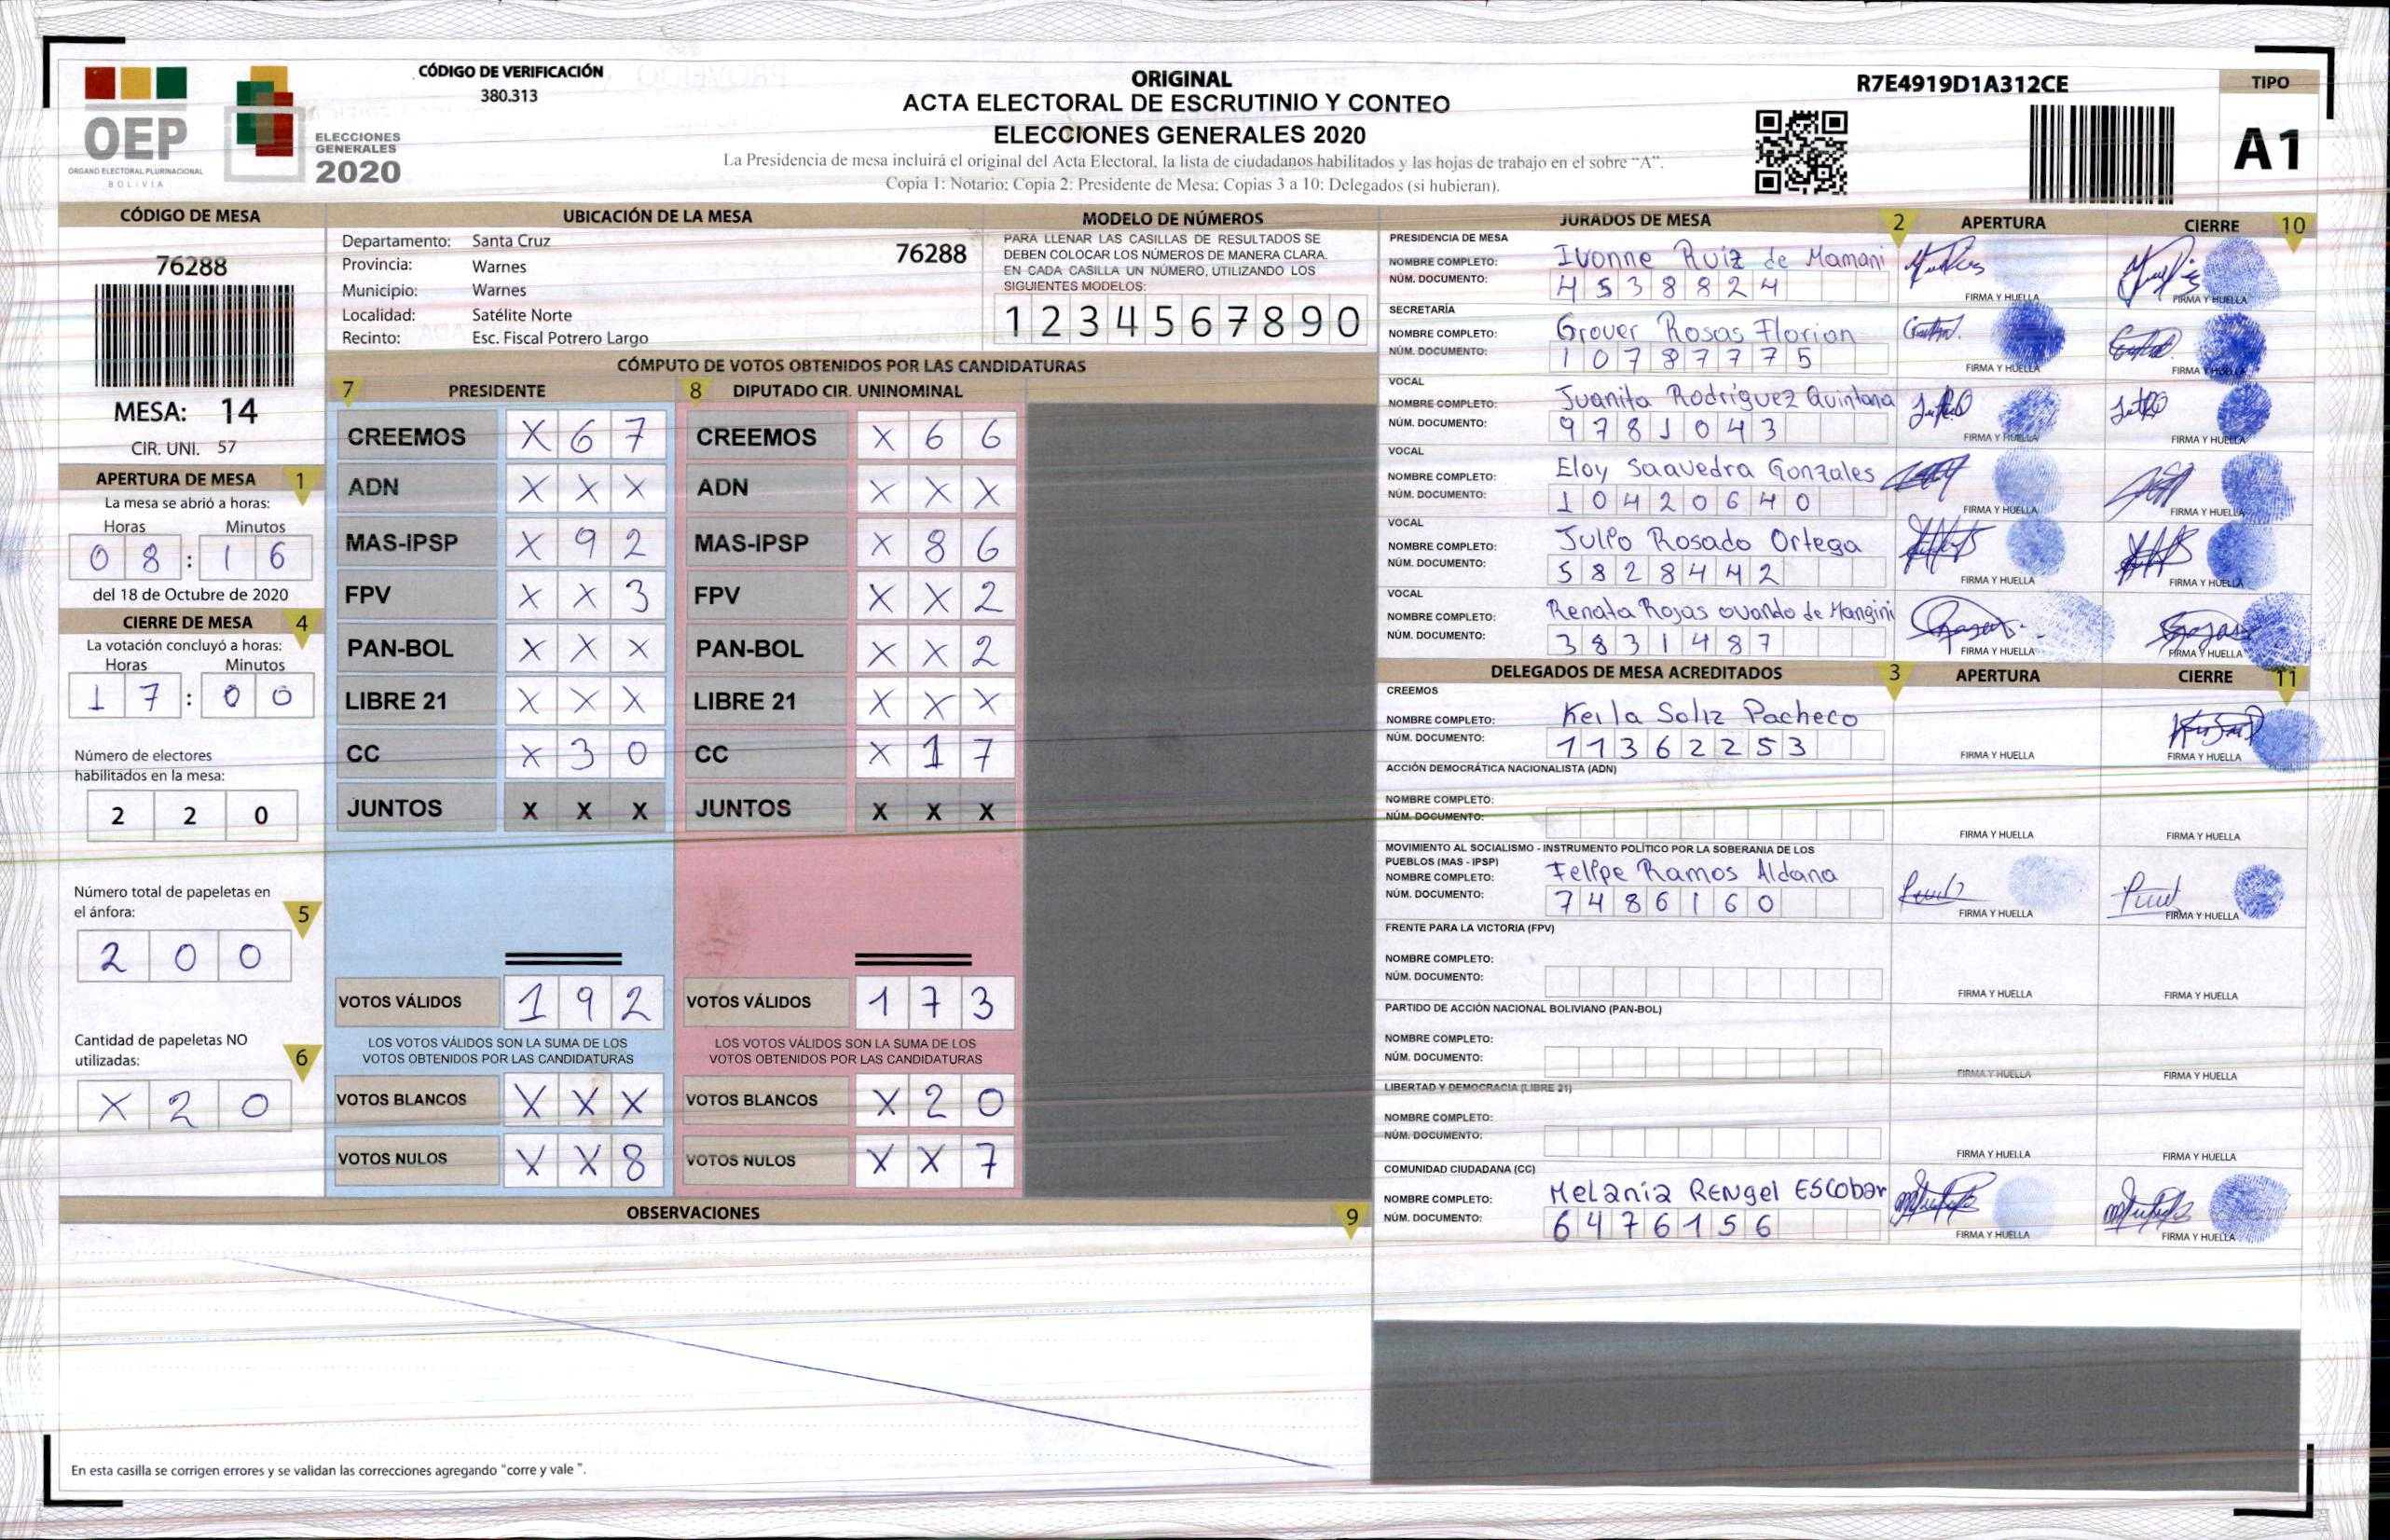 CÓDIGO DE VERIFICACIÓN
380.313
OEP
ÓRGANO ELECTORAL PLURINACIONAL
BOLIVIA
ELECCIONES
GENERALES
2020
ORIGINAL
ACTA ELECTORAL DE ESCRUTINIO Y CONTEO
ELECCIONES GENERALES 2020
La Presidencia de mesa incluirá el original del Acta Electoral, la lista de ciudadanos habilitados y las hojas de trabajo en el sobre “A”.
Copia 1: Notario; Copia 2: Presidente de Mesa; Copias 3 a 10: Delegados (si hubieran).
R7E4919D1A312CE
TIPO
A1
CÓDIGO DE MESA
76288
MESA: 14
CIR. UNI. 57
APERTURA DE MESA 1
La mesa se abrió a horas:
Horas Minutos
0 8 : 1 6
del 18 de Octubre de 2020
CIERRE DE MESA 4
La votación concluyó a horas:
Horas Minutos
1 7 : 0 0
Número de electores
habilitados en la mesa:
2 2 0
Número total de papeletas en
el ánfora: 5
2 0 0
Cantidad de papeletas NO
utilizadas: 6
X 2 0
UBICACIÓN DE LA MESA
Departamento: Santa Cruz 76288
Provincia: Warnes
Municipio: Warnes
Localidad: Satélite Norte
Recinto: Esc. Fiscal Potrero Largo
MODELO DE NÚMEROS
PARA LLENAR LAS CASILLAS DE RESULTADOS SE
DEBEN COLOCAR LOS NÚMEROS DE MANERA CLARA.
EN CADA CASILLA UN NÚMERO, UTILIZANDO LOS
SIGUIENTES MODELOS:
1 2 3 4 5 6 7 8 9 0
CÓMPUTO DE VOTOS OBTENIDOS POR LAS CANDIDATURAS
7 PRESIDENTE 8 DIPUTADO CIR. UNINOMINAL
CREEMOS X 6 7 CREEMOS X 6 6
ADN X X X ADN X X X
MAS-IPSP X 9 2 MAS-IPSP X 8 6
FPV X X 3 FPV X X 2
PAN-BOL X X X PAN-BOL X X 2
LIBRE 21 X X X LIBRE 21 X X X
CC X 3 0 CC X 1 7
JUNTOS X X X JUNTOS X X X
VOTOS VÁLIDOS 1 9 2 VOTOS VÁLIDOS 1 7 3
LOS VOTOS VÁLIDOS SON LA SUMA DE LOS LOS VOTOS VÁLIDOS SON LA SUMA DE LOS
VOTOS OBTENIDOS POR LAS CANDIDATURAS VOTOS OBTENIDOS POR LAS CANDIDATURAS
VOTOS BLANCOS X X X VOTOS BLANCOS X 2 0
VOTOS NULOS X X 8 VOTOS NULOS X X 7
OBSERVACIONES 9
En esta casilla se corrigen errores y se validan las correcciones agregando “corre y vale ”.
JURADOS DE MESA 2 APERTURA CIERRE 10
PRESIDENCIA DE MESA
NOMBRE COMPLETO: Ivonne Ruiz de Mamani
NÚM. DOCUMENTO: 4538824
FIRMA Y HUELLA FIRMA Y HUELLA
SECRETARÍA
NOMBRE COMPLETO: Grover Rosas Florian
NÚM. DOCUMENTO: 10787775
FIRMA Y HUELLA FIRMA Y HUELLA
VOCAL
NOMBRE COMPLETO: Juanita Rodriguez Quintana
NÚM. DOCUMENTO: 9781043
FIRMA Y HUELLA FIRMA Y HUELLA
VOCAL
NOMBRE COMPLETO: Eloy Saavedra Gonzales
NÚM. DOCUMENTO: 10420640
FIRMA Y HUELLA FIRMA Y HUELLA
VOCAL
NOMBRE COMPLETO: Julio Rosado Ortega
NÚM. DOCUMENTO: 5828442
FIRMA Y HUELLA FIRMA Y HUELLA
VOCAL
NOMBRE COMPLETO: Renata Rojas ovando de Mangini
NÚM. DOCUMENTO: 3831487
FIRMA Y HUELLA FIRMA Y HUELLA
DELEGADOS DE MESA ACREDITADOS 3 APERTURA CIERRE 11
CREEMOS
NOMBRE COMPLETO: Keila Soliz Pacheco
NÚM. DOCUMENTO: 11362253
FIRMA Y HUELLA FIRMA Y HUELLA
ACCIÓN DEMOCRÁTICA NACIONALISTA (ADN)
NOMBRE COMPLETO:
NÚM. DOCUMENTO:
FIRMA Y HUELLA FIRMA Y HUELLA
MOVIMIENTO AL SOCIALISMO - INSTRUMENTO POLÍTICO POR LA SOBERANIA DE LOS
PUEBLOS (MAS - IPSP)
NOMBRE COMPLETO: Felipe Ramos Aldana
NÚM. DOCUMENTO: 7486160
FIRMA Y HUELLA FIRMA Y HUELLA
FRENTE PARA LA VICTORIA (FPV)
NOMBRE COMPLETO:
NÚM. DOCUMENTO:
FIRMA Y HUELLA FIRMA Y HUELLA
PARTIDO DE ACCIÓN NACIONAL BOLIVIANO (PAN-BOL)
NOMBRE COMPLETO:
NÚM. DOCUMENTO:
FIRMA Y HUELLA FIRMA Y HUELLA
LIBERTAD Y DEMOCRACIA (LIBRE 21)
NOMBRE COMPLETO:
NÚM. DOCUMENTO:
FIRMA Y HUELLA FIRMA Y HUELLA
COMUNIDAD CIUDADANA (CC)
NOMBRE COMPLETO: Melania Rengel Escobar
NÚM. DOCUMENTO: 6476156
FIRMA Y HUELLA FIRMA Y HUELLA